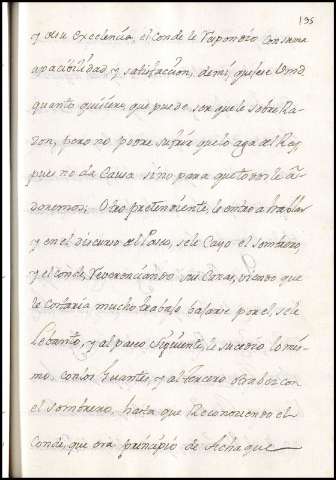 195
y de su Excelencia, el conde le Respondio con suma
apacibilidad, y satisfacion, de mi, quejese Vmd.
quanto quisiere, que puede ser que le sobre Ra-
zon, pero no podre sufrir que lo aga del Rey
pues no da Causa sino para que todos le a-
doremos; Otro pretendiente, le entro a hablar
y en el discurso del Paseo, se le Cayo el sombrero,
y el conde, Reverenciando sus Canas, viendo que
le costaria mucho trabajo bajarse por el se le
Lebanto, y al paseo siguiente, le sucedio lo mis-
mo, con los Guantes, y al tercero otra bez con
el sombrero, hasta que Reconociendo el
Conde, que era principio de Achaque